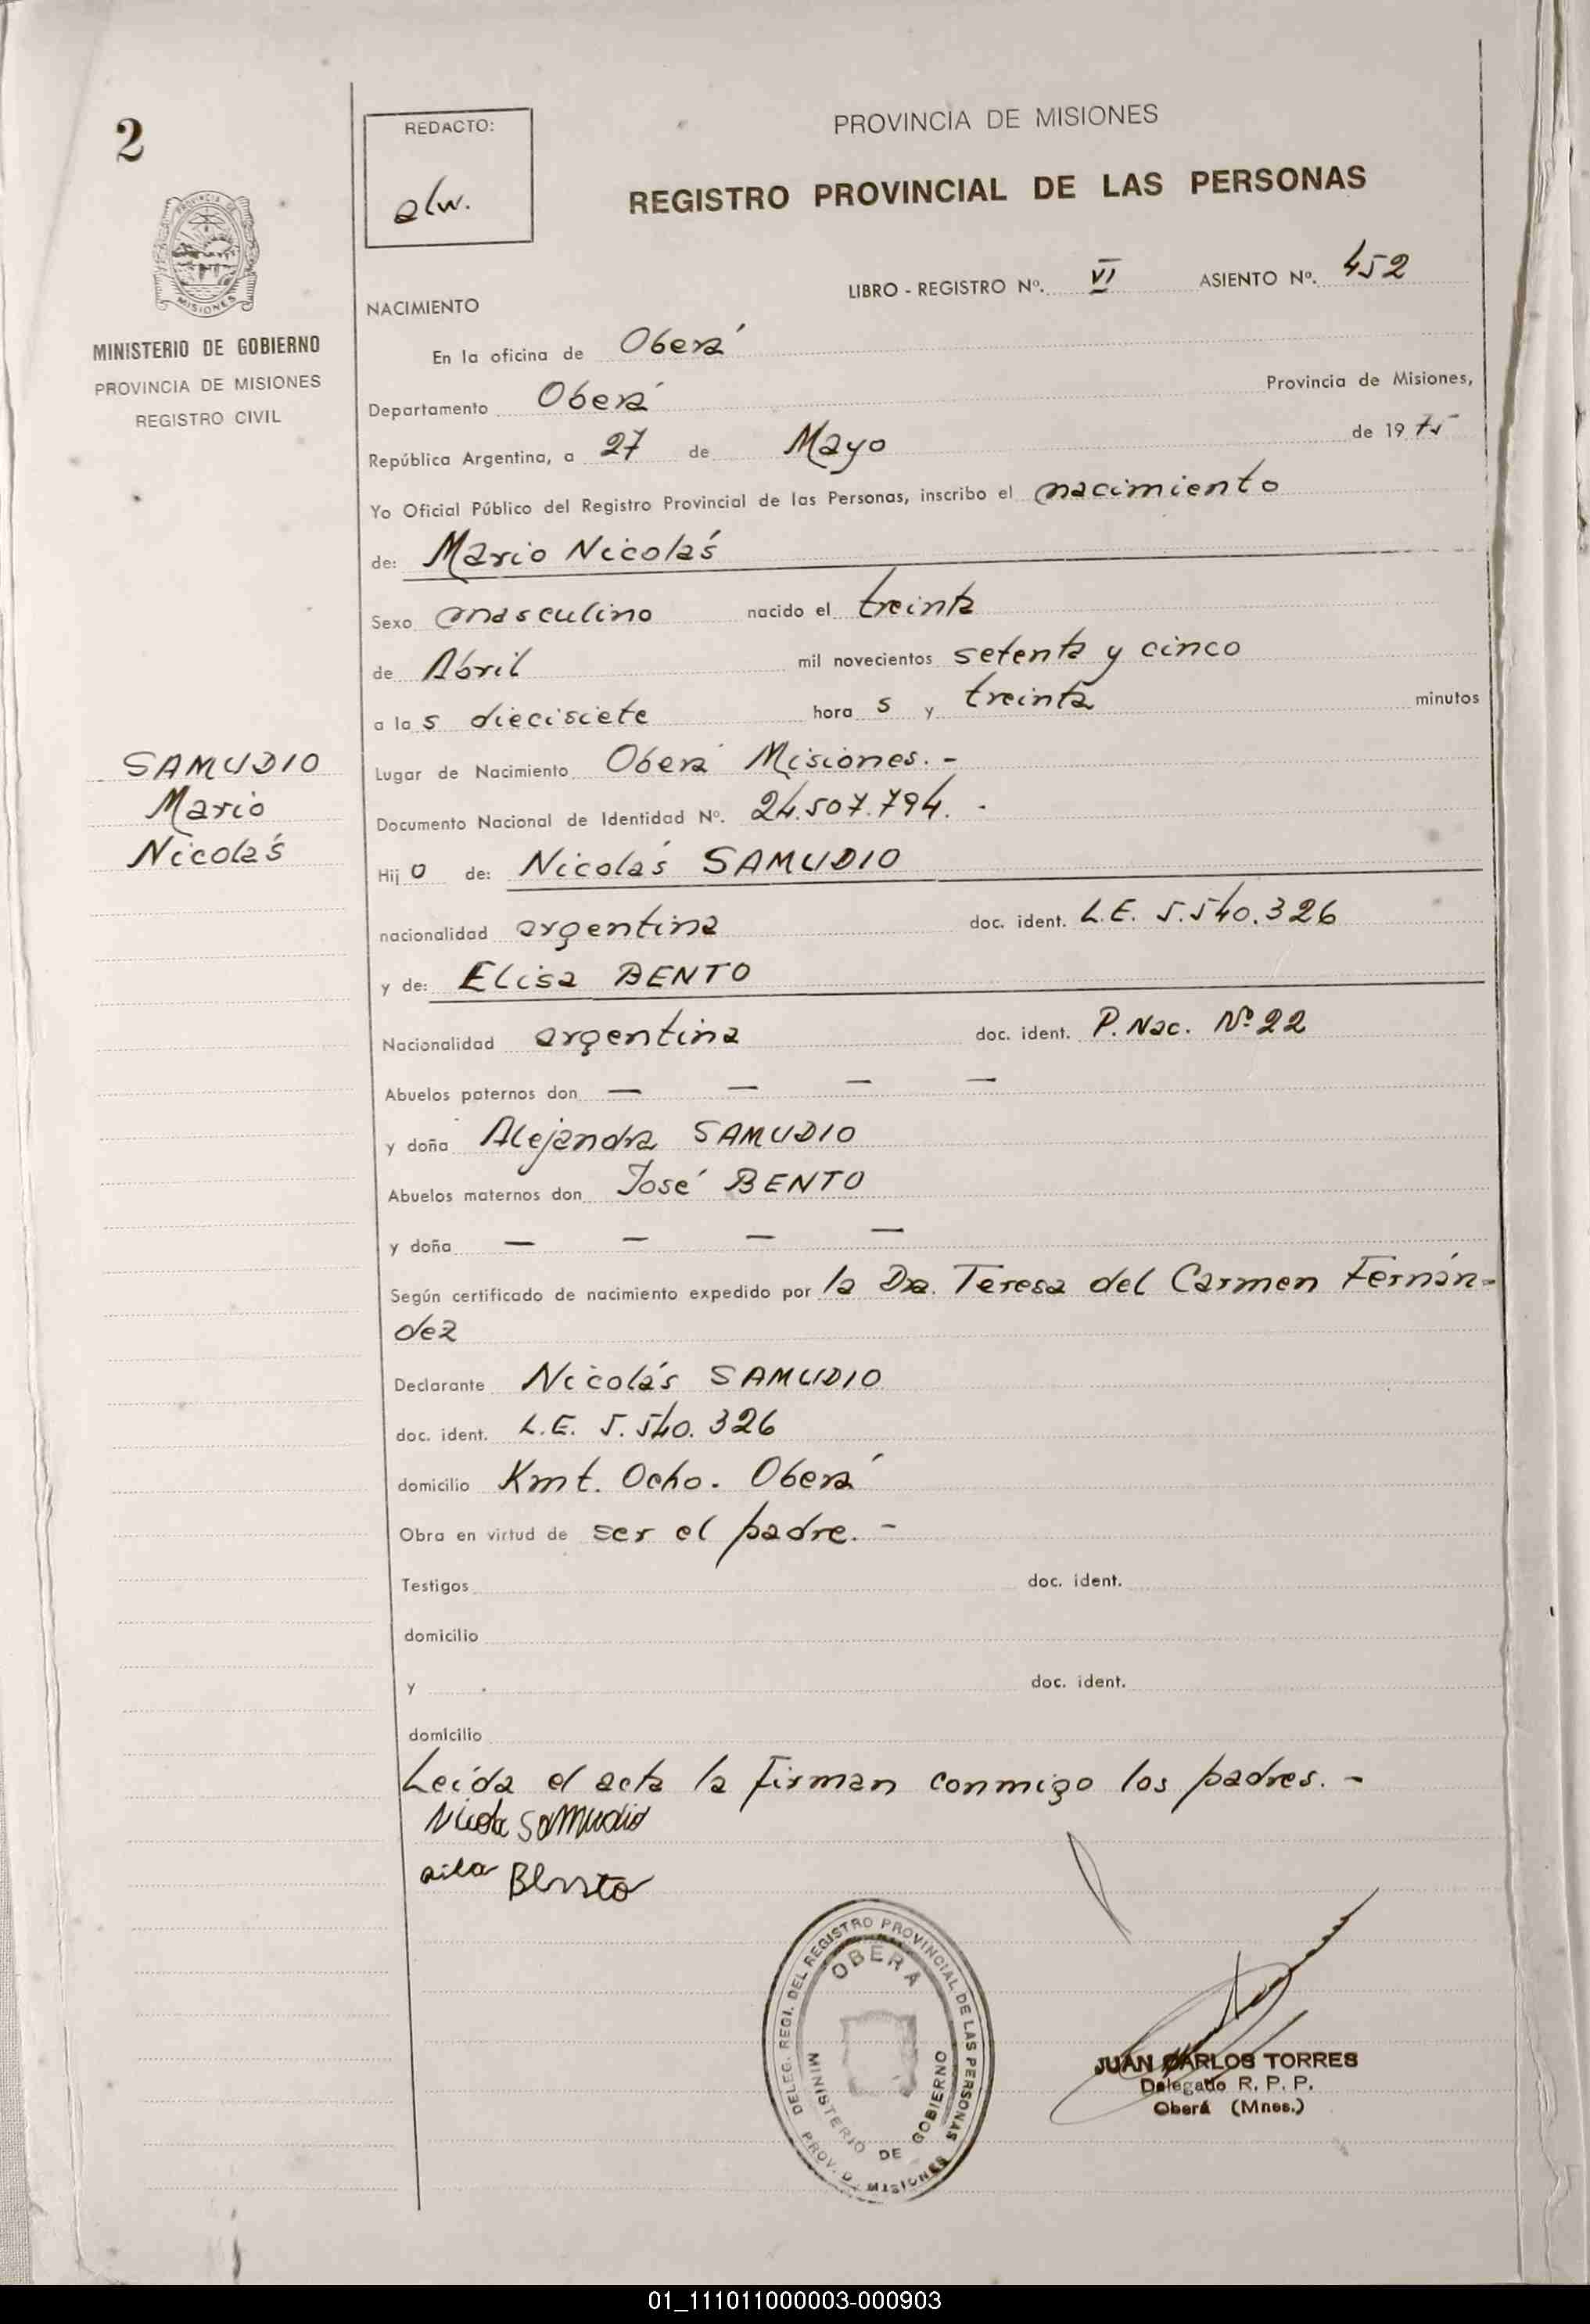 2
REDACTO:
alw.
PROVINCIA DE MISIONES
REGISTRO PROVINCIAL DE LAS PERSONAS
PROVINCIA DE
MISIONES
MINISTERIO DE GOBIERNO
PROVINCIA DE MISIONES
REGISTRO CIVIL
LIBRO - REGISTRO Nº. VI ASIENTO Nº. 452
NACIMIENTO
En la oficina de Oberá
Departamento Oberá Provincia de Misiones,
República Argentina, a 27 de Mayo de 19 75
Yo Oficial Público del Registro Provincial de las Personas, inscribo el nacimiento
de: Mario Nicolás
Sexo masculino nacido el treinta
de Abril mil novecientos setenta y cinco
a la s diecisiete hora s y treinta minutos
SAMUDIO
Mario
Nicolás
Lugar de Nacimiento Oberá Misiones. -
Documento Nacional de Identidad Nº. 24.507.794. -
Hij o de: Nicolás SAMUDIO
nacionalidad argentina doc. ident. L.E. 5.540.326
y de: Elisa BENTO
Nacionalidad argentina doc. ident. P. Nac. Nº 22
Abuelos paternos don — — — —
y doña Alejandra SAMUDIO
Abuelos maternos don José BENTO
y doña — — — —
Según certificado de nacimiento expedido por la Dra. Teresa del Carmen Fernán-
dez
Declarante Nicolás SAMUDIO
doc. ident. L.E. 5.540.326
domicilio Kmt. Ocho. Oberá
Obra en virtud de ser el padre. -
Testigos doc. ident.
domicilio
y doc. ident.
domicilio
Leída el acta la firman conmigo los padres. -
Samudio
Bento
DELEG. REGI. DEL REGISTRO PROVINCIAL DE LAS PERSONAS
OBERÁ
MINISTERIO DE GOBIERNO
PROV. D. MISIONES
JUAN CARLOS TORRES
Delegado R. P. P.
Oberá (Mnes.)
01_111011000003-000903